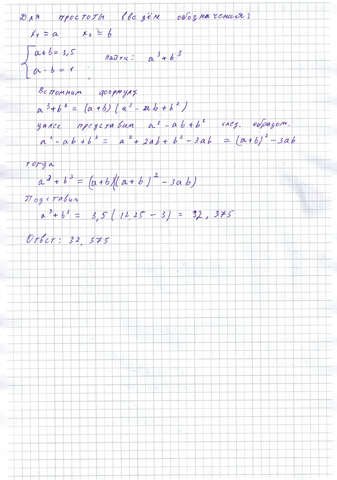 Для простоты введём обозначения:
x₁ = a x₂ = b
a+b = 3,5 Найти: a³+b³
a·b = 1
Вспомним формулу
a³+b³ = (a+b)(a²-ab+b²)
Далее представим a²-ab+b² след. образом
a²-ab+b² = a²+2ab+b²-3ab = (a+b)²-3ab
тогда
a³+b³ = (a+b)((a+b)²-3ab)
Подставим
a³+b³ = 3,5(12,25-3) = 32,375
Ответ: 32,375